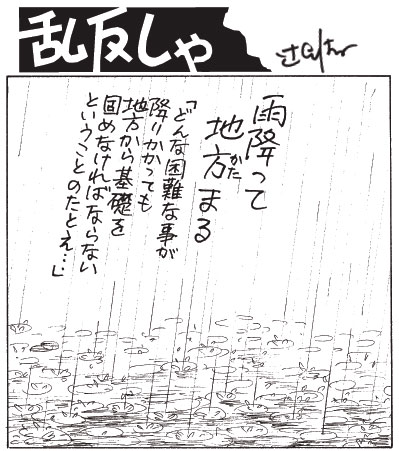 乱反しゃ
雨降って
地方まる
かた
「どんな困難な事が
降りかかっても
地方から基礎を
固めなければならない
ということのたとえ…」